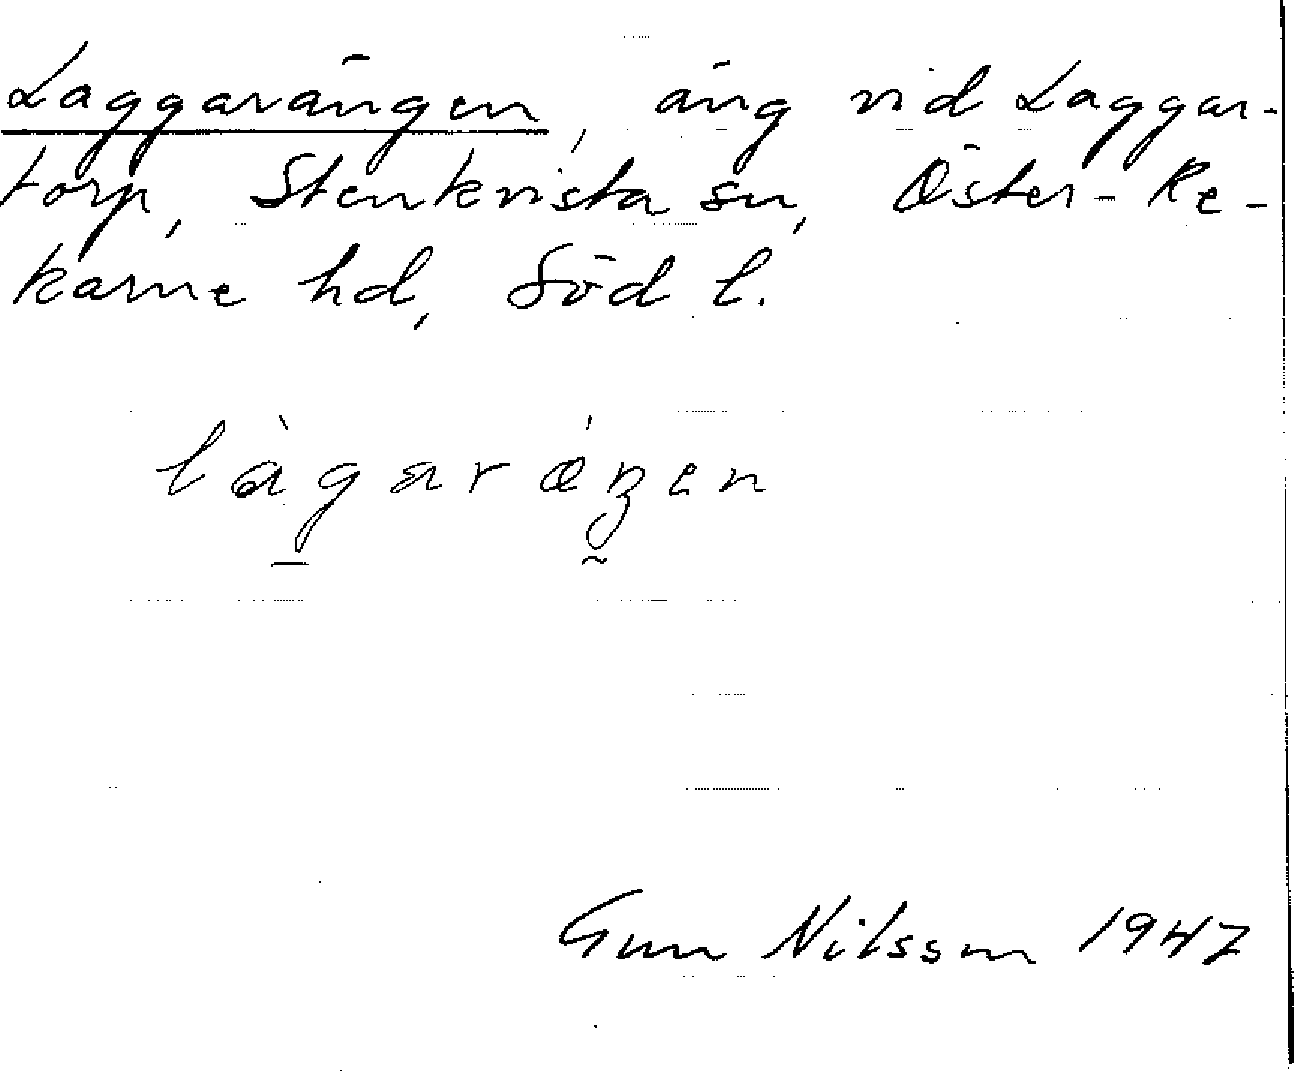 Laggarängen, äng vid Laggar-
torp, Stenkvista sn, Öster-Re-
karne hd, Söd l.
làgarǽŋen
Gun Nilsson 1947